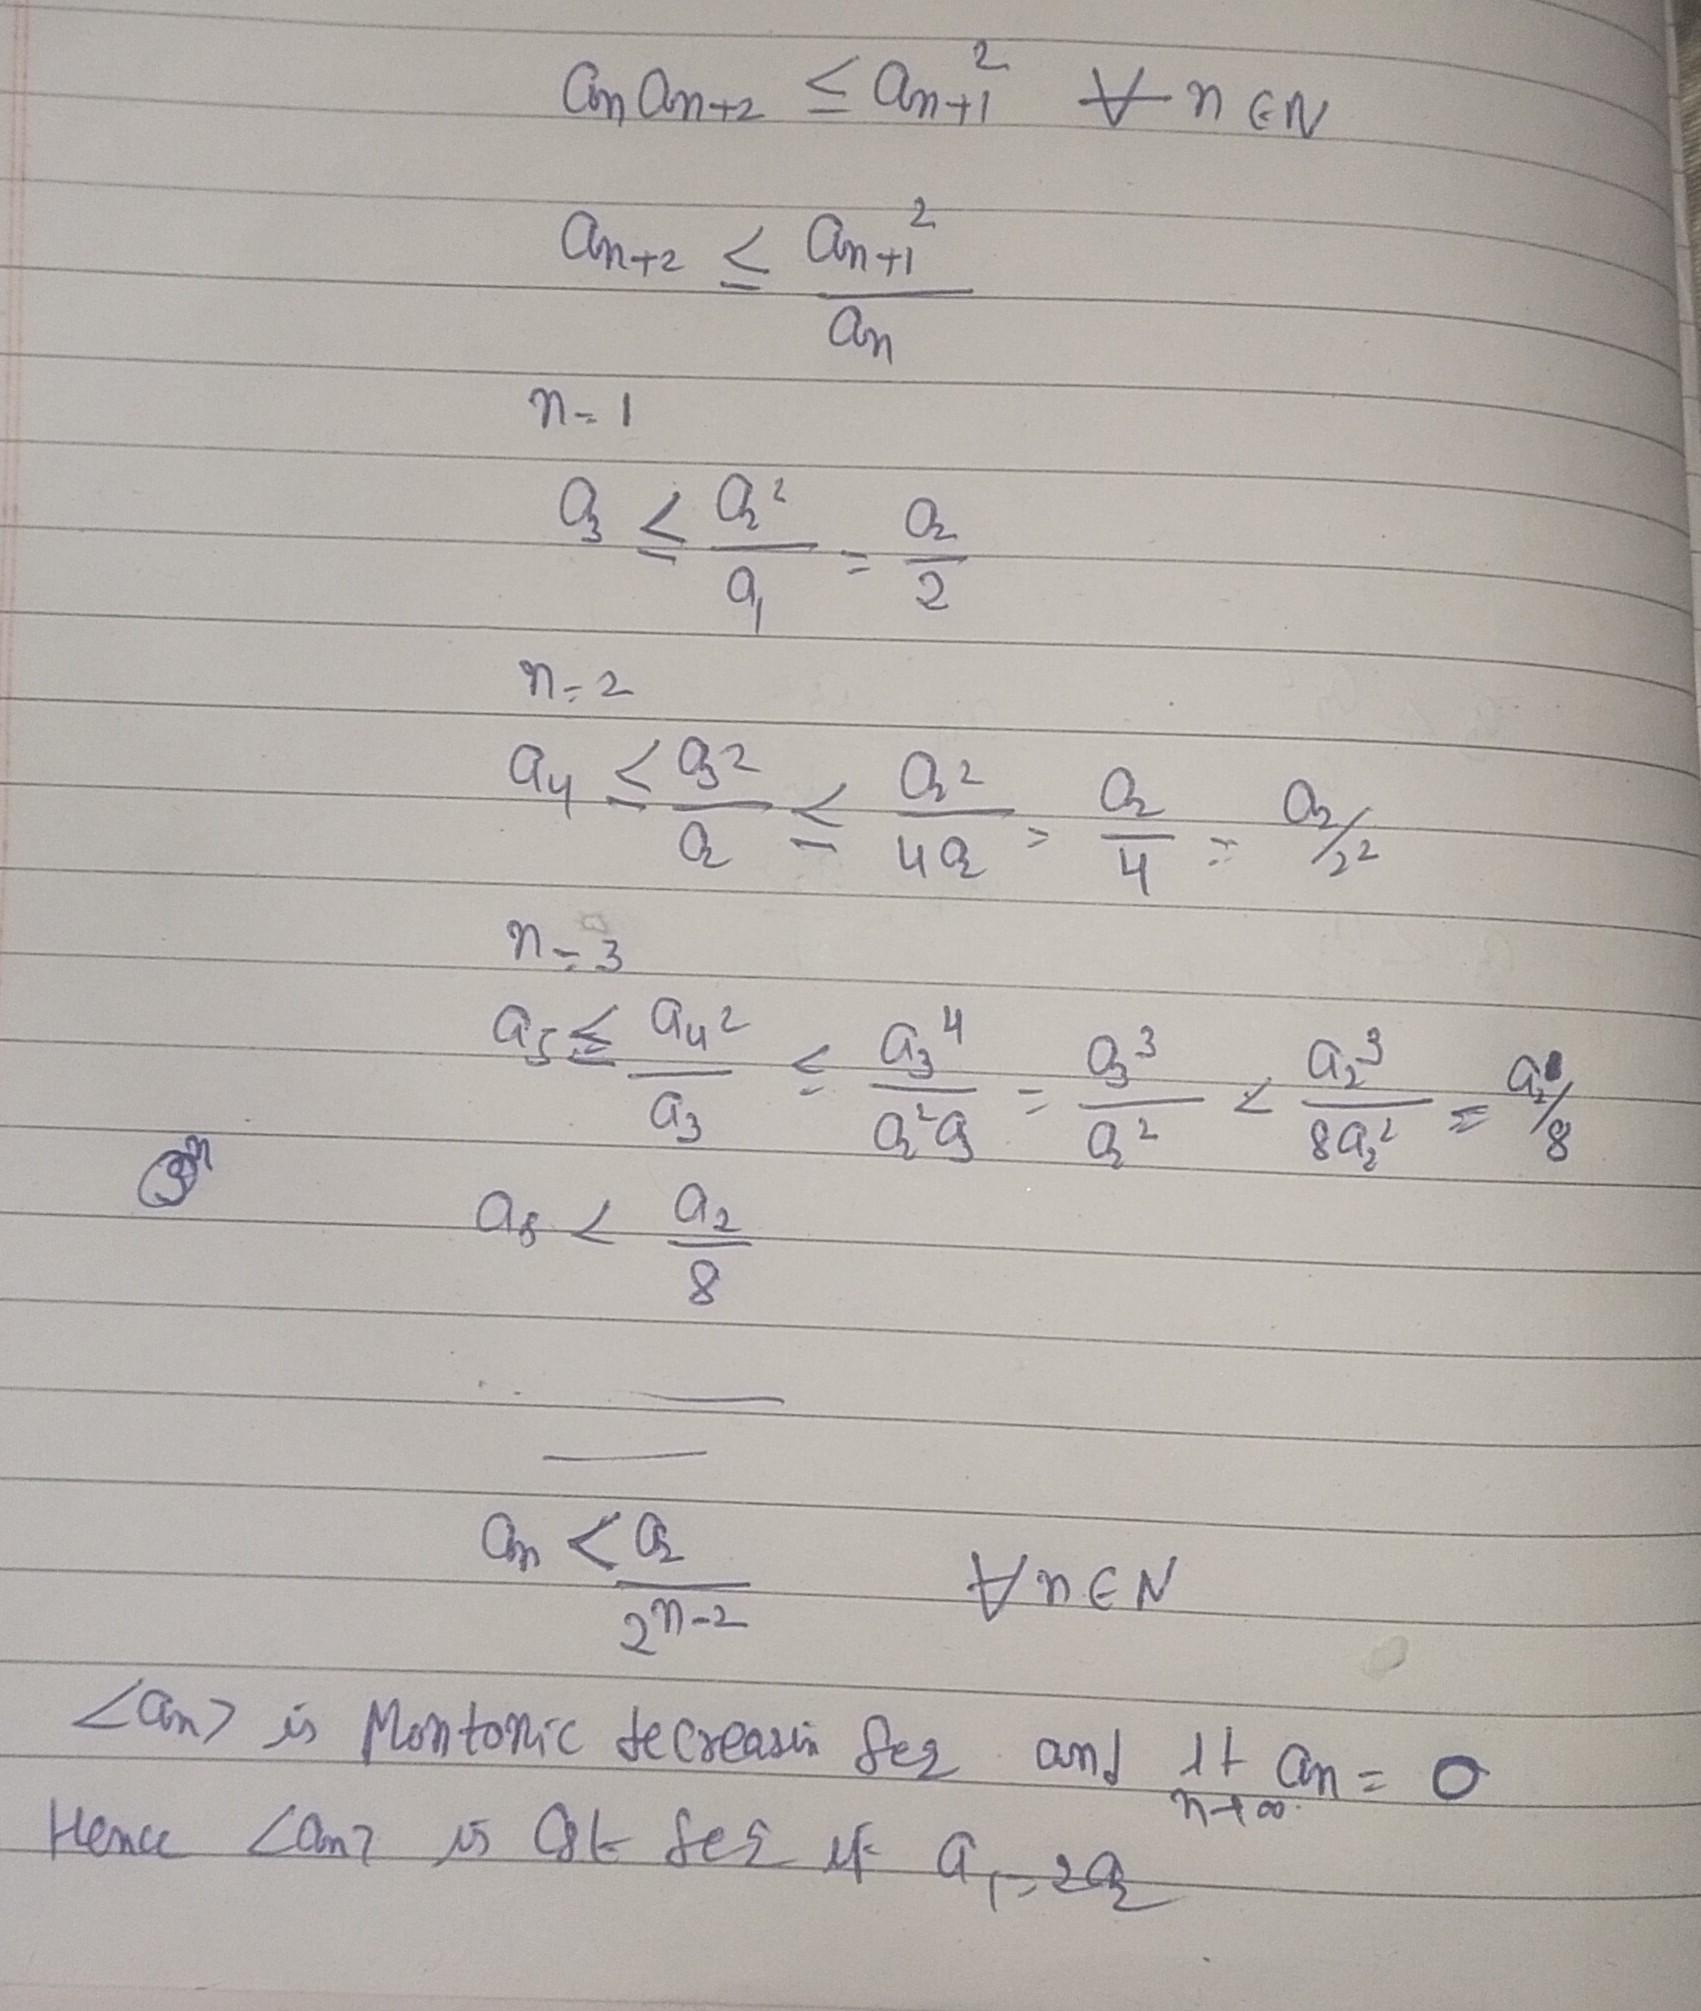 an an+2 ≤ an+1² ∀ n ∈ N
an+2 ≤ an+1² / an
n = 1
a3 ≤ a2² / a1 = a2 / 2
n = 2
a4 ≤ a3² / a2 ≤ a2² / 4a2 = a2 / 4 = a2/2²
n = 3
a5 ≤ a4² / a3 ≤ a3⁴ / a2² a3 = a3³ / a2² < a2³ / 8a2² = a2/8
a5 < a2 / 8
an < a2 / 2^(n-2) ∀ n ∈ N
<an> is Montonic decreasin Seq and lt n→∞ an = 0
Hence <an> is Cgt Seq if a1 = 2a2